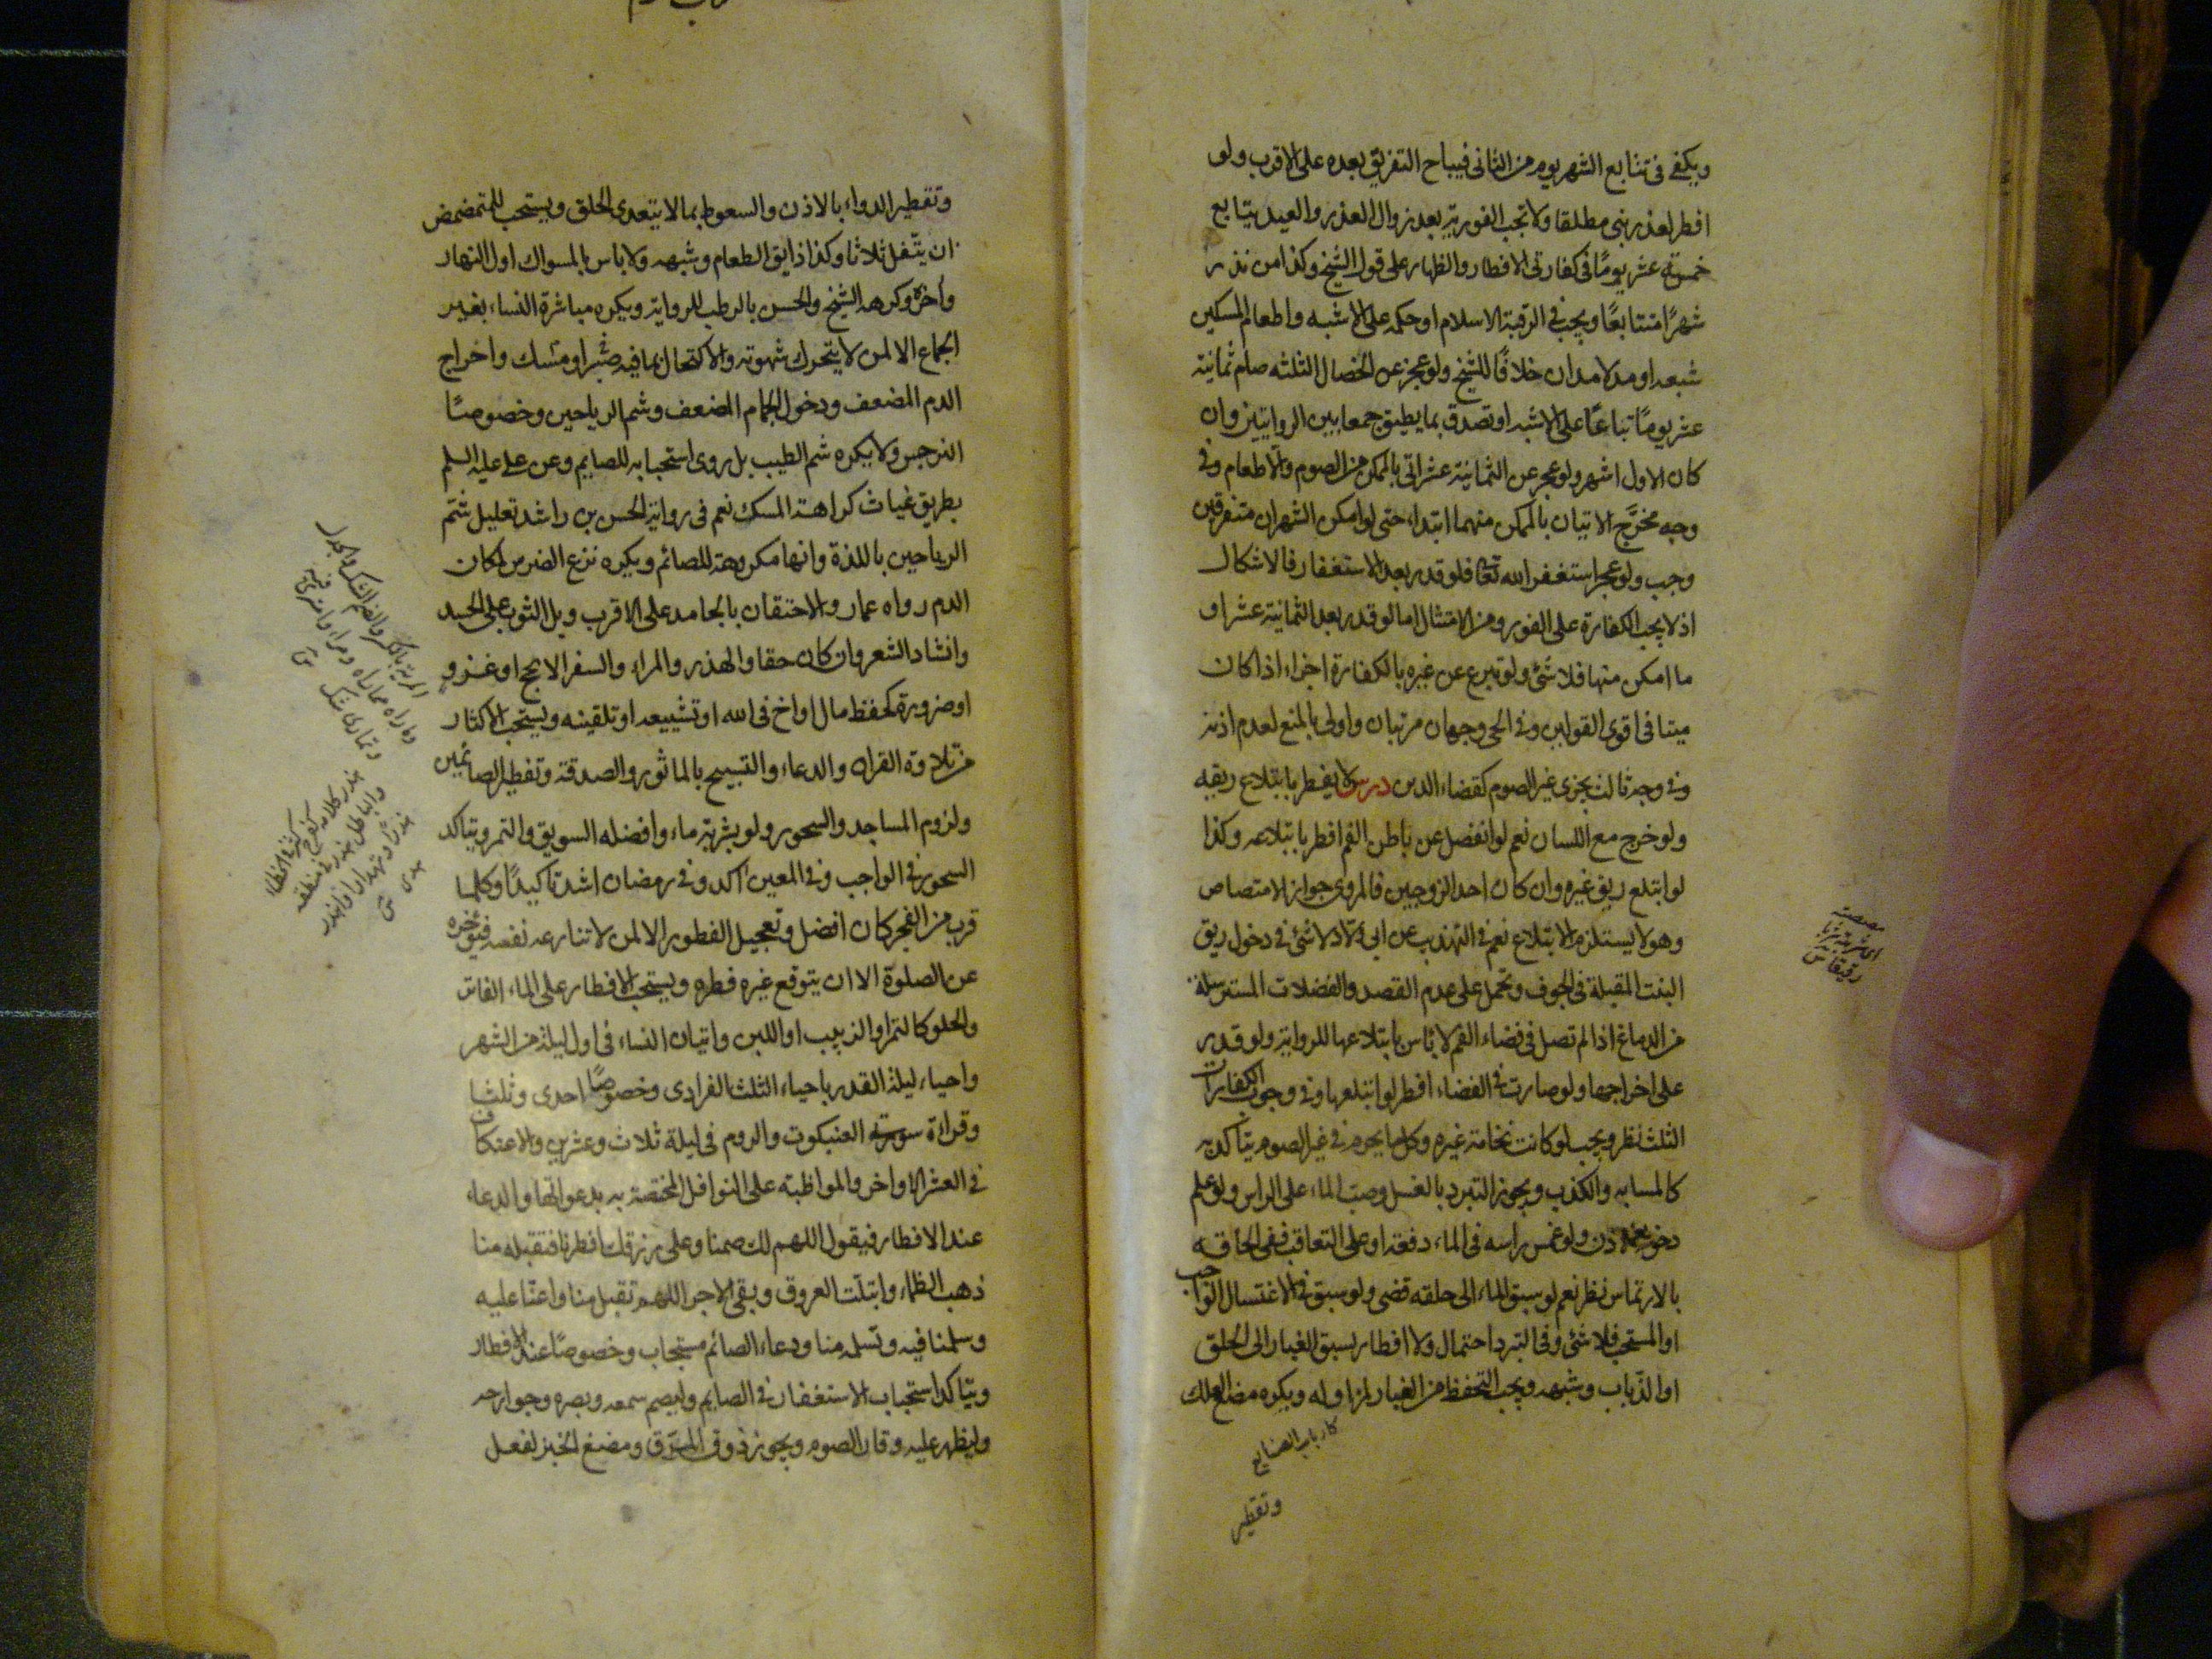 ويكفي في تتابع الشهر يوم من الثاني فيباح التفريق بعده على الاقرب ولو
افطر لعذر بنى مطلقا ولا تجب الفورية بعد زوال العذر والعيد يتابع
خمسة عشر يومًا في كفارتي الافطار والظهار على قول الشيخ وكذا من نذر
شهرًا متتابعًا ويجب في الرقبة الاسلام او حكمه على الاشبه واطعام المسكين
شبعه او مد لا مدان خلافًا للشيخ ولو عجز عن الخصال الثلثه صام ثمانية
عشر يومًا تباعًا على الاشبه او تصدق بما يطيق جمعا بين الروايتين وان
كان الاول اشهر ولو عجز عن الثمانية عشر اتى بالممكن من الصوم والاطعام وفي
وجه مخرّج الاتيان بالممكن منهما ابتداء حتى لو امكن الشهران متفرقين
وجب ولو عجز استغفر الله تعالى فلو قدر بعد الاستغفار فالاشكال
اذ لا يجب الكفارة على الفور ومن الامتثال اما لو قدر بعد الثمانية عشر او
ما امكن منها فلا شئ ولو تبرع عن غيره بالكفارة اجزاء اذا كان
ميتا في اقوى القولين وفي الحي وجهان مرتبان واولى بالمنع لعدم اذنه
وفي وجه ثالث يجزى غير الصوم كقضاء الدين درس لا يفطر بابتلاع ريقه
ولو خرج مع اللسان نعم لو انفصل عن باطن الفم افطر بابتلاعه وكذا
لو ابتلع ريق غيره وان كان احد الزوجين فالمروي جواز الامتصاص
وهو لا يستلزم الابتلاع نعم في التهذيب عن ابي ولّاد لا شئ في دخول ريق
البنت المقبلة في الجوف وتحمل على عدم القصد والفضلات المسترسلة
من الدماغ اذا لم تصل في فضاء الفم لا باس بابتلاعها للرواية ولو قدر
على اخراجها ولو صارت في الفضاء افطر لو ابتلعها وفي وجوب الكفارات
الثلث نظر ويجب لو كانت نخامة غيره وكل ما يحرم في غير الصوم يتأكد به
كالمسابه والكذب ويجوز التبرد بالغسل وصب الماء على الراس ولو علم
دخوله الاذن ولو غمس راسه في الماء دفعة او على التعاقب ففي الحاقه
بالارتماس نظر نعم لو سبق الماء الى حلقه قضى ولو سبق في الاغتسال الواجب
او المستحب فلا شئ وفي التبرد احتمال ولا افطار بسبق الغبار الى الحلق
او الذّباب وشبهه ويجب التحفظ من الغبار لمزاوله ويكره مضغ العلك
كارباب الصنايع
وتقطير
مصصته
اى شربته شربا
رقيقا ص
وتقطير الدواء بالاذن والسعوط بما لا يتعدى الحلق ويستحب للمتمضمض
ان يتّفل ثلاثا وكذا ذايق الطعام وشبهه ولا باس بالمسواك اول النهار
وآخره وكرهه الشيخ والحسن بالرطب للرواية ويكره مباشرة النساء بغير
الجماع الا لمن لا يتحرك شهوته والاكتحال بما فيه صبر او مسك واخراج
الدم المضعف ودخول الحمام المضعف وشم الرياحين وخصوصًا
النرجس ولا يكره شم الطيب بل روى استحبابه للصايم وعن علي عليه السلم
بطريق غياث كراهة المسك نعم في رواية الحسن بن راشد تعليل شم
الرياحين باللذة وانها مكروهة للصائم ويكره نزع الضرس لمكان
الدم رواه عمار والاحتقان بالجامد على الاقرب وبل الثوب على الجسد
وانشاد الشعر وان كان حقا والهذر والمراء والسفر الا لحج او غزو
او ضرورة كحفظ مال او اخ في الله او تشييعه او تلقينه ويستحب الاكثار
من تلاوة القران والدعاء والتسبيح بالماثور والصدقة وتفطير الصائمين
ولزوم المساجد والسحور ولو بشربة ماء وافضله السويق والتمر ويتاكد
السحور في الواجب وفي المعين آكد وفي رمضان اشد تاكيدًا وكلما
قرب من الفجر كان افضل وتعجيل الفطور الا لمن لا تنازعه نفسه فيؤخره
عن الصلوة الا ان يتوقع غيره فطره ويستحب الافطار على الماء الفاتر
والحلو كالتمر او الزبيب او اللبن واتيان النساء في اول ليلة من الشهر
واحياء ليلة القدر باحياء الثلث الفرادى وخصوصًا احدى وثلثا
وقراءة سورة العنكبوت والروم في ليلة ثلاث وعشرين والاعتكاف
في العشر الاواخر والمواظبة على النوافل المختصة به بدعواتها والدعاء
عند الافطار فيقول اللهم لك صمنا وعلى رزقك افطرنا فتقبله منا
ذهب الظماء وابتلّت العروق وبقى الاجر اللهم تقبل منا واعنّا عليه
وسلمنا فيه وتسلمه منا ودعاء الصائم مستجاب وخصوصًا عند الافطار
ويتاكد استحباب الاستغفار في الصايم وليصم سمعه وبصره وجوارحه
وليظهر عليه وقار الصوم ويجوز ذوق المرق ومضغ الخبز لفعل
المرية بالكسر والضم الشك والجدل
وماراه مماراة ومراء وامترى فيه
وتمارى شك ق
هذر كلامه كفرح كثر في الخطاء
والباطل